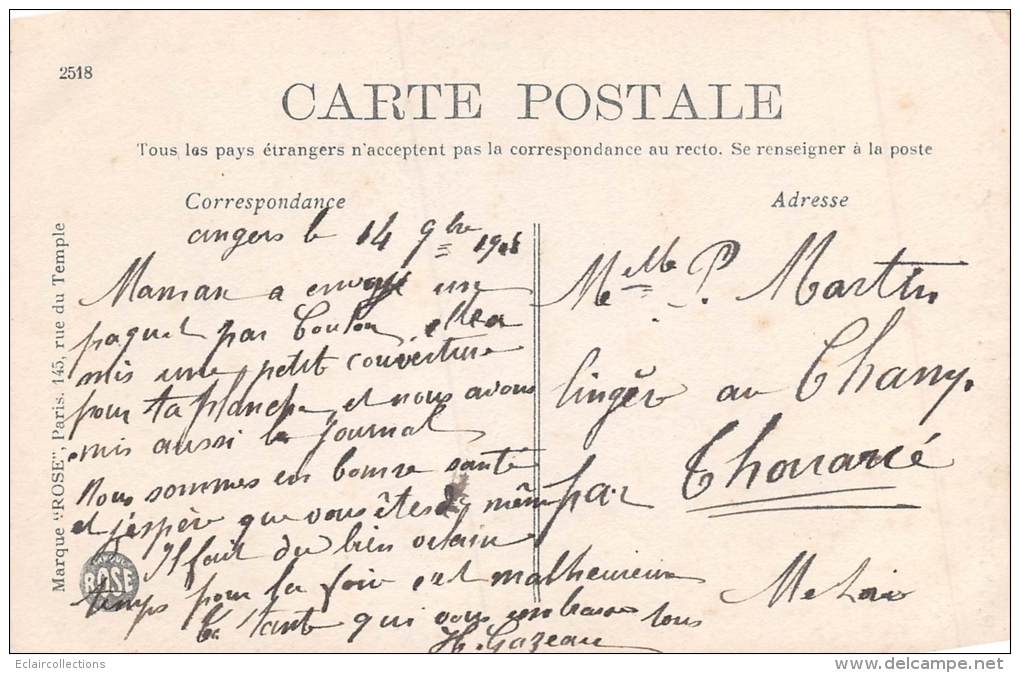 2518
CARTE POSTALE
Tous les pays étrangers n'acceptent pas la correspondance au recto. Se renseigner à la poste
Correspondance
Adresse
Marque "ROSE", Paris. 145, rue du Temple
ROSE
angers le 14 9bre
Maman a envoyé une
paquet par Toulon, elle a
mis une petit couverture
pour ta planche, et nous avons
mis aussi le journal
Nous sommes en bonne santé
et j'espère que vous êtes de même
Il fait du bien
temps pour la foire c'est malheureux
Ta tante qui vous embrasse tous
Th. Gazeau
Melle P. Martin
lingère au Champ.
par Thouarcé
M et Loire
Eclaircollections
http://eclaircollections.delcampe.net